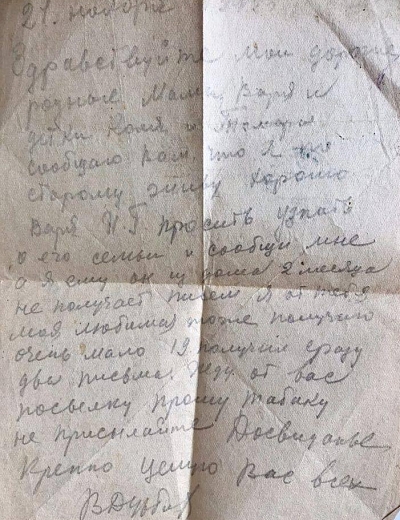 21. ноября
Здравствуйте мои дорогие
родные Мама, Варя и
детки Коля и Тамара
сообщаю вам, что я по
старому живу хорошо
Варя просить узнать
о его семьи и сообщи мне
а я ему он из дома 2 месяца
не получает писем, я от тебя
моя любимая тоже получаю
очень мало 19 получил сразу
два письма. Жду от вас
посылку прошу табаку
не присылайте Досвиданье
Крепко целую вас всех